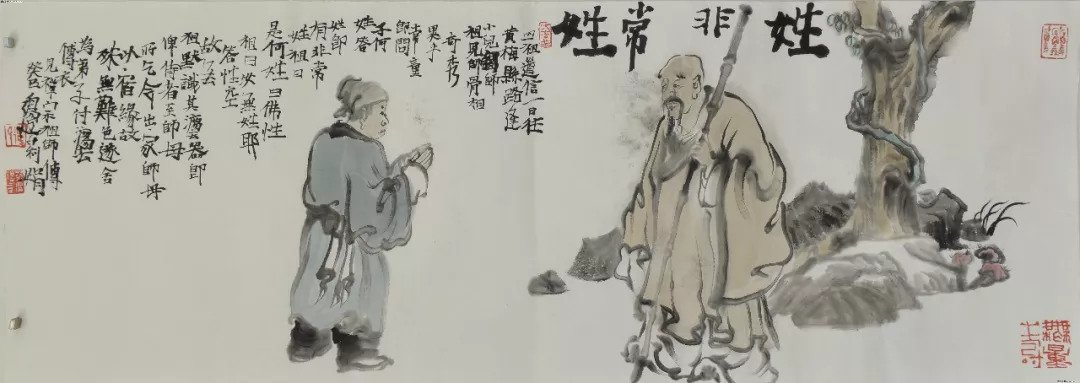 姓非常姓
祖道信一日往
黃梅縣路逢
小兒
祖見師骨相
奇秀
異乎
常童
問
子何
姓答
姓即
有非常
姓祖曰
是何姓曰佛性
祖曰汝無姓耶
答性空
故
祖默識其法器即
俾侍者至師母
所乞令出家師母
以宿緣故
殊無難色遂舍
為弟子付法
傳衣
見禪宗祖師傳